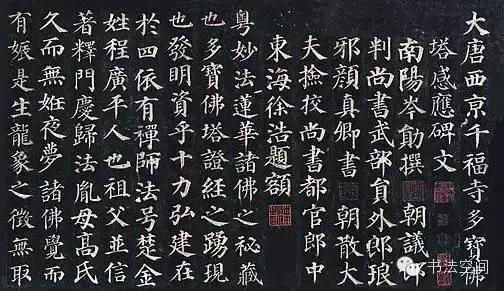 大唐西京千福寺多寶佛
塔感應碑文
南陽岑勛撰 朝議郎
判尚書武部員外郎琅
邪顏真卿書 朝散大
夫撿挍尚書都官郎中
東海徐浩題額
粵妙法蓮華諸佛之秘藏
也多寶佛塔證經之踴現
也發明資乎十力弘建在
於四依有禪師法号楚金
姓程廣平人也祖父並信
著釋門慶歸法胤母高氏
久而無姙夜夢諸佛覺而
有娠是生龍象之徵無取
书法空间